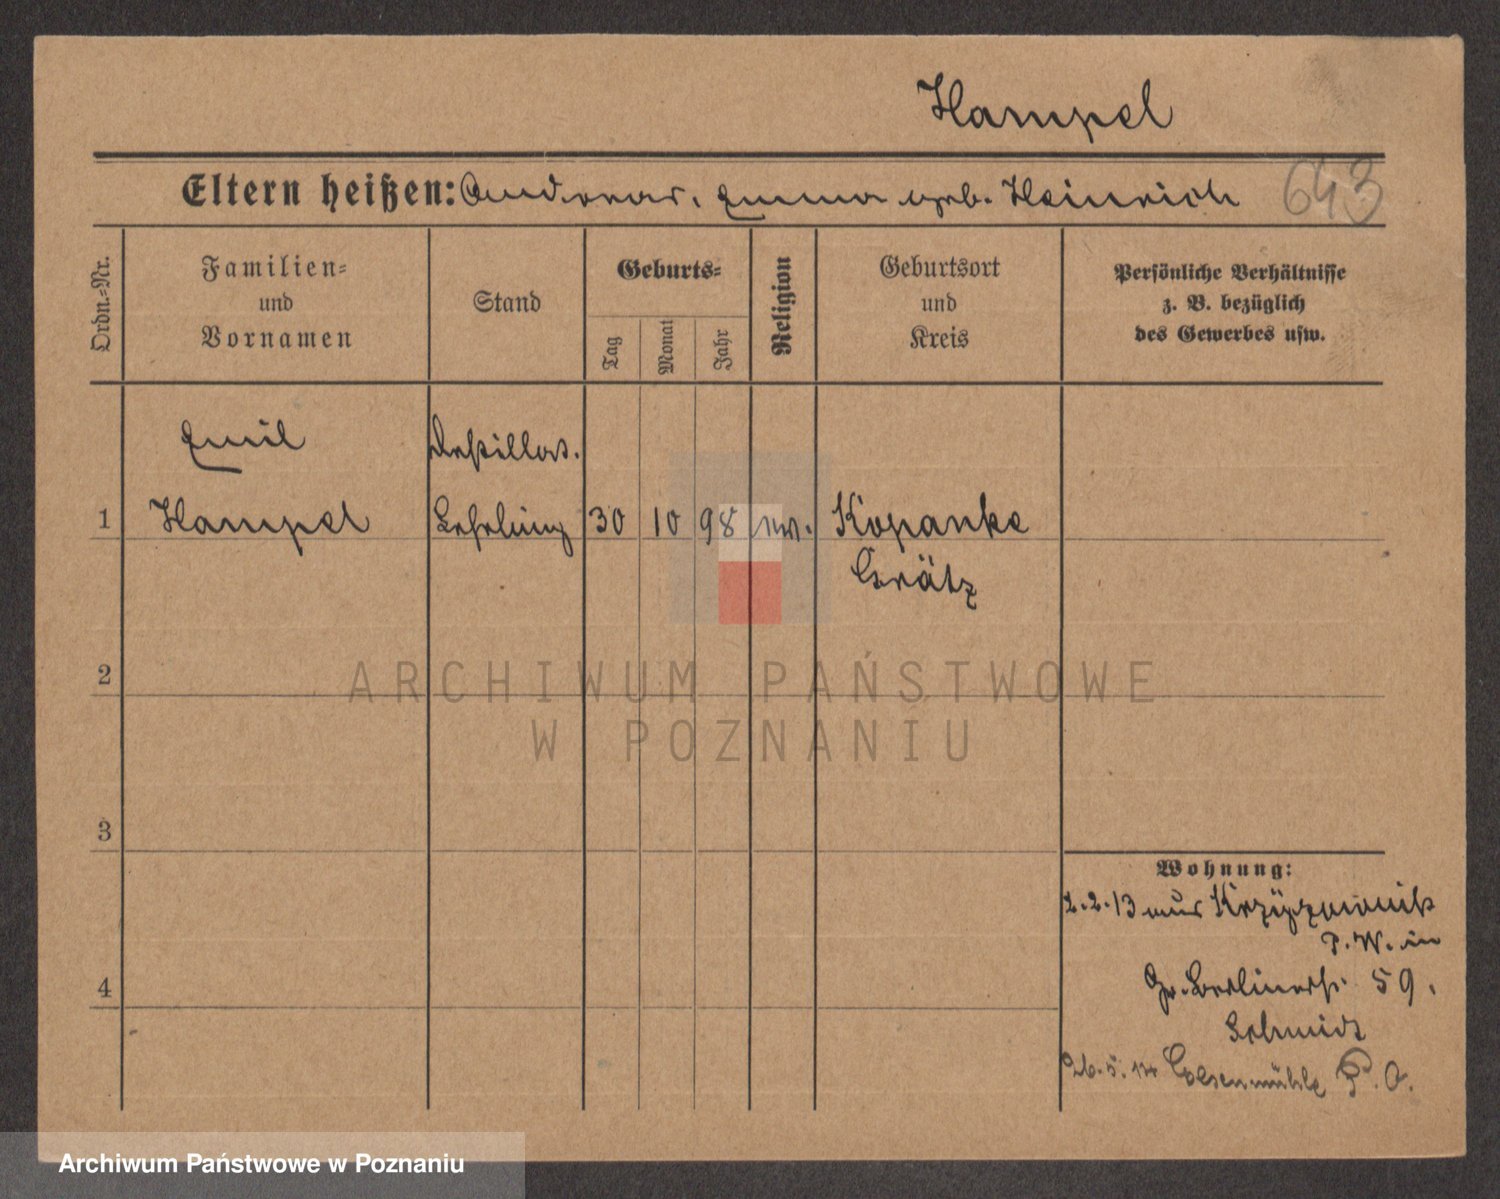 Hampel
Eltern heißen: Andreas. Emma geb. Heinrich
643
Ordn.-Nr.
Familien-
und
Vornamen
Stand
Geburts-
Tag
Monat
Jahr
Religion
Geburtsort
und
Kreis
Persönliche Verhältnisse
z. B. bezüglich
des Gewerbes usw.
Emil
Destillat.
1 Hampel Lehrling 30 10 98 ev. Kopanke
Grätz
2
3
4
Wohnung:
2.2.13 aus
P. W. in
Gr. Berlinerstr. 59.
Schmidt
26.5.14 P. O.
ARCHIWUM PAŃSTWOWE
W POZNANIU
Archiwum Państwowe w Poznaniu